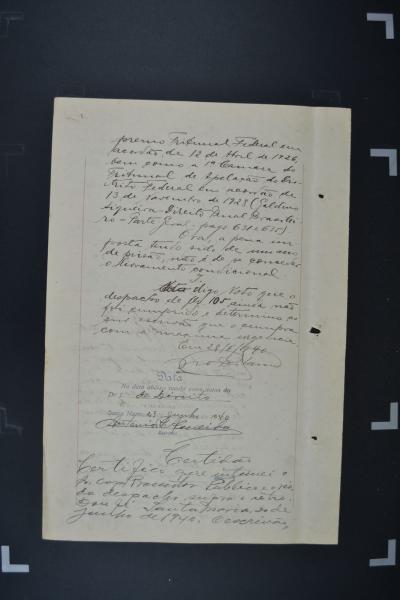 premo Tribunal Federal em
accordão, de 12 de Abril de 1926,
bem como a 1ª Camara do
Tribunal de Apelação do Dis-
trito Federal em acordão de
13 de Novembro de 1928 (Galdino
Siqueira - Direito Penal Brasilei-
ro - Parte Geral - pags 631 e 655)
Ora, a pena im-
posta tendo sido de um ano
de prisão, não é de se conceder
o livramento condicional.
digo, Noto que o
despacho de fls 105 ainda não
foi cumprido e determino ao
snr. escrivão que o cumpra
com a maxima urgencia
Em 28/6/940
Data
Na data abaixo recebi estes autos do
Dr. Juiz de Direito
Santa Maria, 28 Junho 1940
Escrivão
Certidão
Certifico que intimei o
Publico
do despacho supra e retro.
Dou fé. Santa Maria,
junho de 1940. O escrivão,